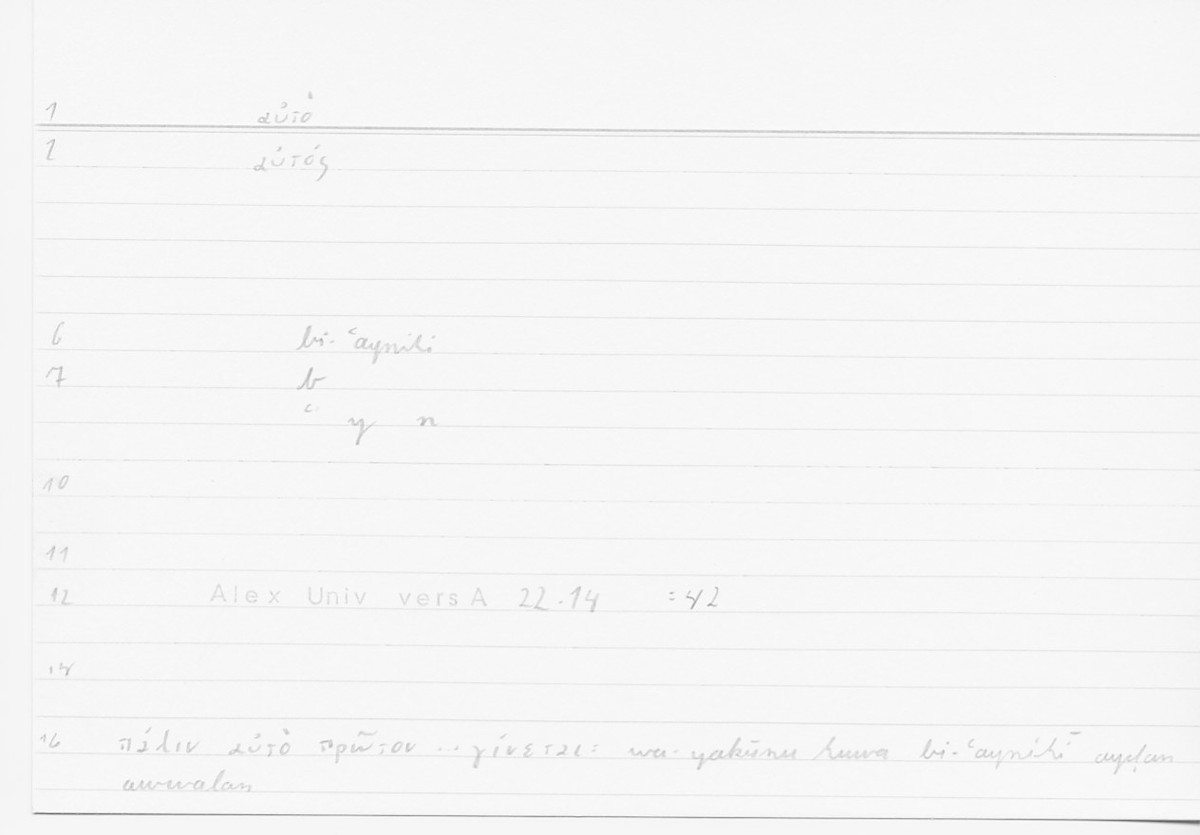 1 αὐτὸ
2 αὐτός
6 bi-ʿaynihi
7 b
ʿ y n
10
11
12 Alex Univ vers A 22.14 :42
14
16 πάλιν αὐτὸ πρῶτον ... γίνεται: wa-yakūnu huwa bi-ʿaynihī ayḍan
awwalan